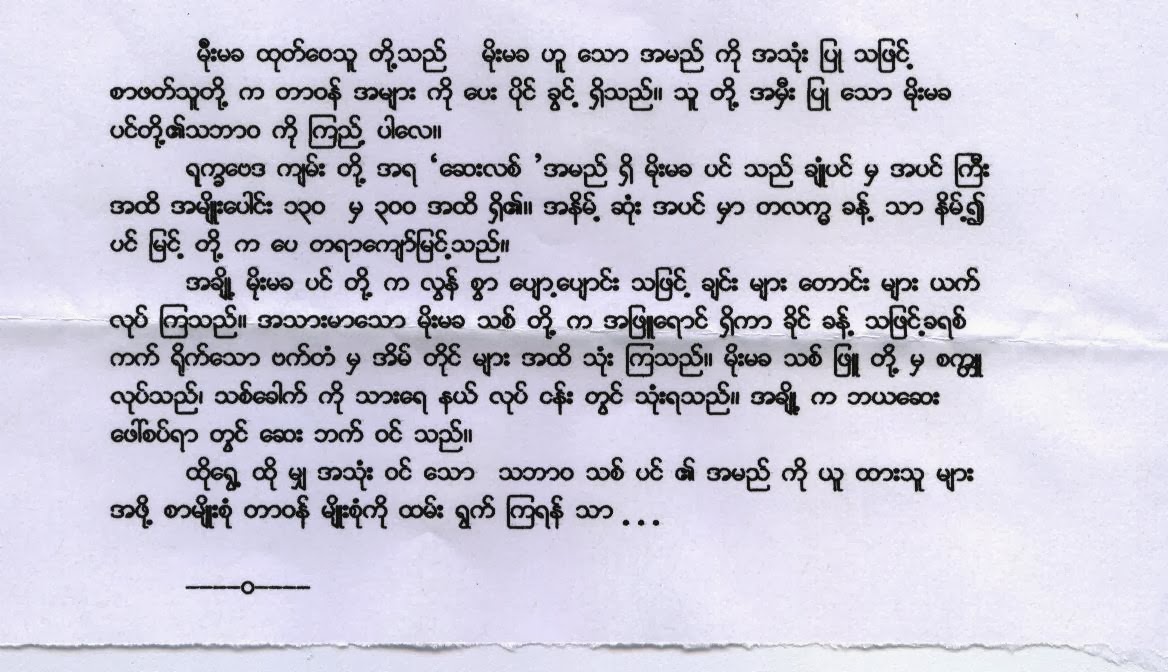 မိုးမခ ထုတ်ဝေသူ တို့သည် မိုးမခ ဟူ သော အမည် ကို အသုံး ပြု သဖြင့်
စာဖတ်သူတို့ က တာဝန် အများ ကို ပေး ပိုင် ခွင့် ရှိသည်။ သူ တို့ အမှီး ပြု သော မိုးမခ
ပင်တို့၏သဘာဝ ကို ကြည့် ပါလေ။
ရုက္ခဗေဒ ကျမ်း တို့ အရ ‘ဆေးလစ် ’အမည် ရှိ မိုးမခ ပင် သည် ချုံပင် မှ အပင် ကြီး
အထိ အမျိုးပေါင်း ၁၃၀ မှ ၃၀၀ အထိ ရှိ၏။ အနိမ့် ဆုံး အပင် မှာ တလက္မ ခန့် သာ နိမ့်၍
ပင် မြင့် တို့ က ပေ တရာကျော်မြင့်သည်။
အချို့ မိုးမခ ပင် တို့ က လွန် စွာ ပျော့ပျောင်း သဖြင့် ချင်း များ တောင်း များ ယက်
လုပ် ကြသည်။ အသားမာသော မိုးမခ သစ် တို့ က အဖြူရောင် ရှိကာ ခိုင် ခန့် သဖြင့်ခရစ်
ကက် ရိုက်သော ဗက်တံ မှ အိမ် တိုင် များ အထိ သုံး ကြသည်။ မိုးမခ သစ် ဖြူ တို့ မှ စက္ကူ
လုပ်သည်၊ သစ်ခေါက် ကို သားရေ နယ် လုပ် ငန်း တွင် သုံးရသည်။ အချို့ က ဘယဆေး
ဖေါ်စပ်ရာ တွင် ဆေး ဘက် ဝင် သည်။
ထိုရွေ့ ထို မျှ အသုံး ဝင် သော သဘာဝ သစ် ပင် ၏ အမည် ကို ယူ ထားသူ များ
အဖို့ စာမျိုးစုံ တာဝန် မျိုးစုံကို ထမ်း ရွက် ကြရန် သာ ...